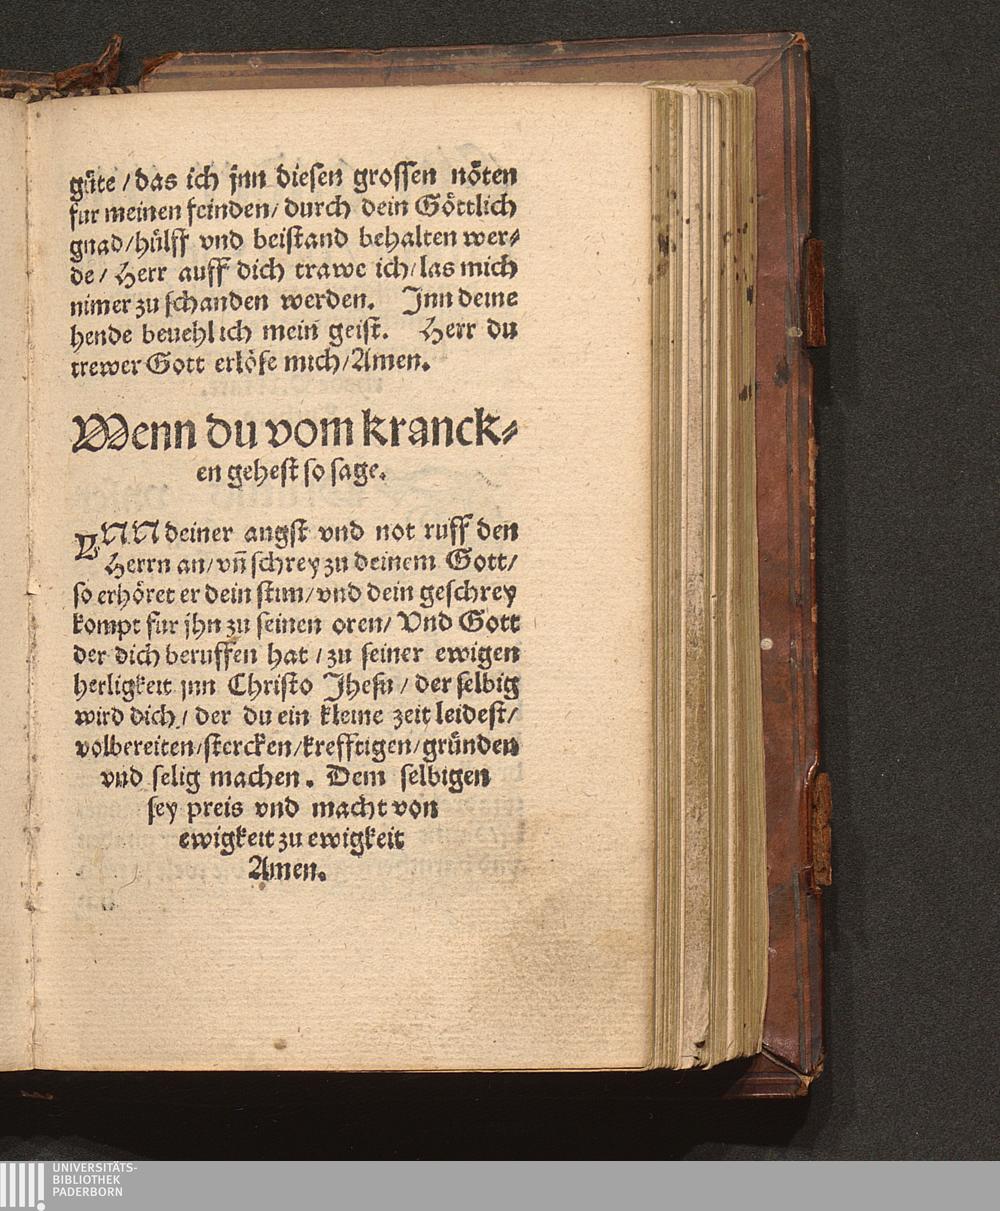 güte / das ich jnn diesen grossen nöten
fur meinen feinden / durch dein Göttlich
gnad / hülff vnd beistand behalten wer⸗
de / Herr auff dich trawe ich / las mich
nimer zu schanden werden. Jnn deine
hende beuehl ich mein geist. Herr du
trewer Gott erlöse mich / Amen.
Wenn du vom kranck⸗
en gehest so sage.
JNN deiner angst vnd not ruff den
Herrn an / vn̄ schrey zu deinem Gott /
so erhöret er dein stim / vnd dein geschrey
kompt fur jhn zu seinen oren / Vnd Gott
der dich beruffen hat / zu seiner ewigen
herligkeit jnn Christo Jhesu / der selbig
wird dich / der du ein kleine zeit leidest /
volbereiten / stercken / krefftigen / gründen
vnd selig machen. Dem selbigen
sey preis vnd macht von
ewigkeit zu ewigkeit
Amen.
UNIVERSITÄTS-
BIBLIOTHEK
PADERBORN